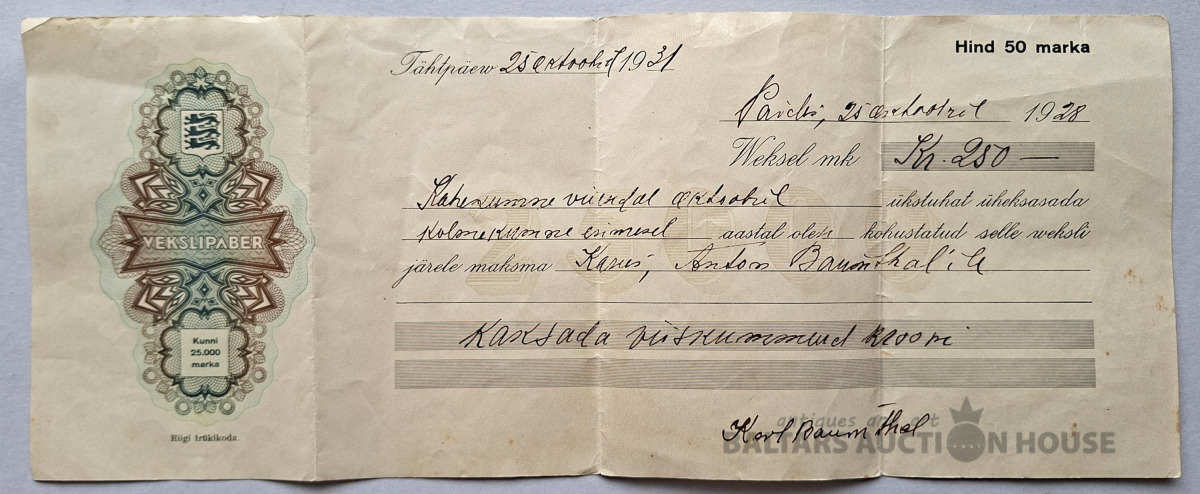 Hind 50 marka
Tähtpäew 25 oktoobril 1931
25 oktoobril 1928
Weksel mk Kr. 250 —
25000
Kahekümne viiendal oktoobril ükstuhat üheksasada
kolmekümne esimesel aastal olen kohustatud selle weksli
järele maksma Anton Baumthal'ile
Kakssada viiskümmend krooni
Karl Baumthal
VEKSLIPABER
Kunni
25.000
marka
Riigi trükikoda.
antiques and art
BALTARS AUCTION HOUSE